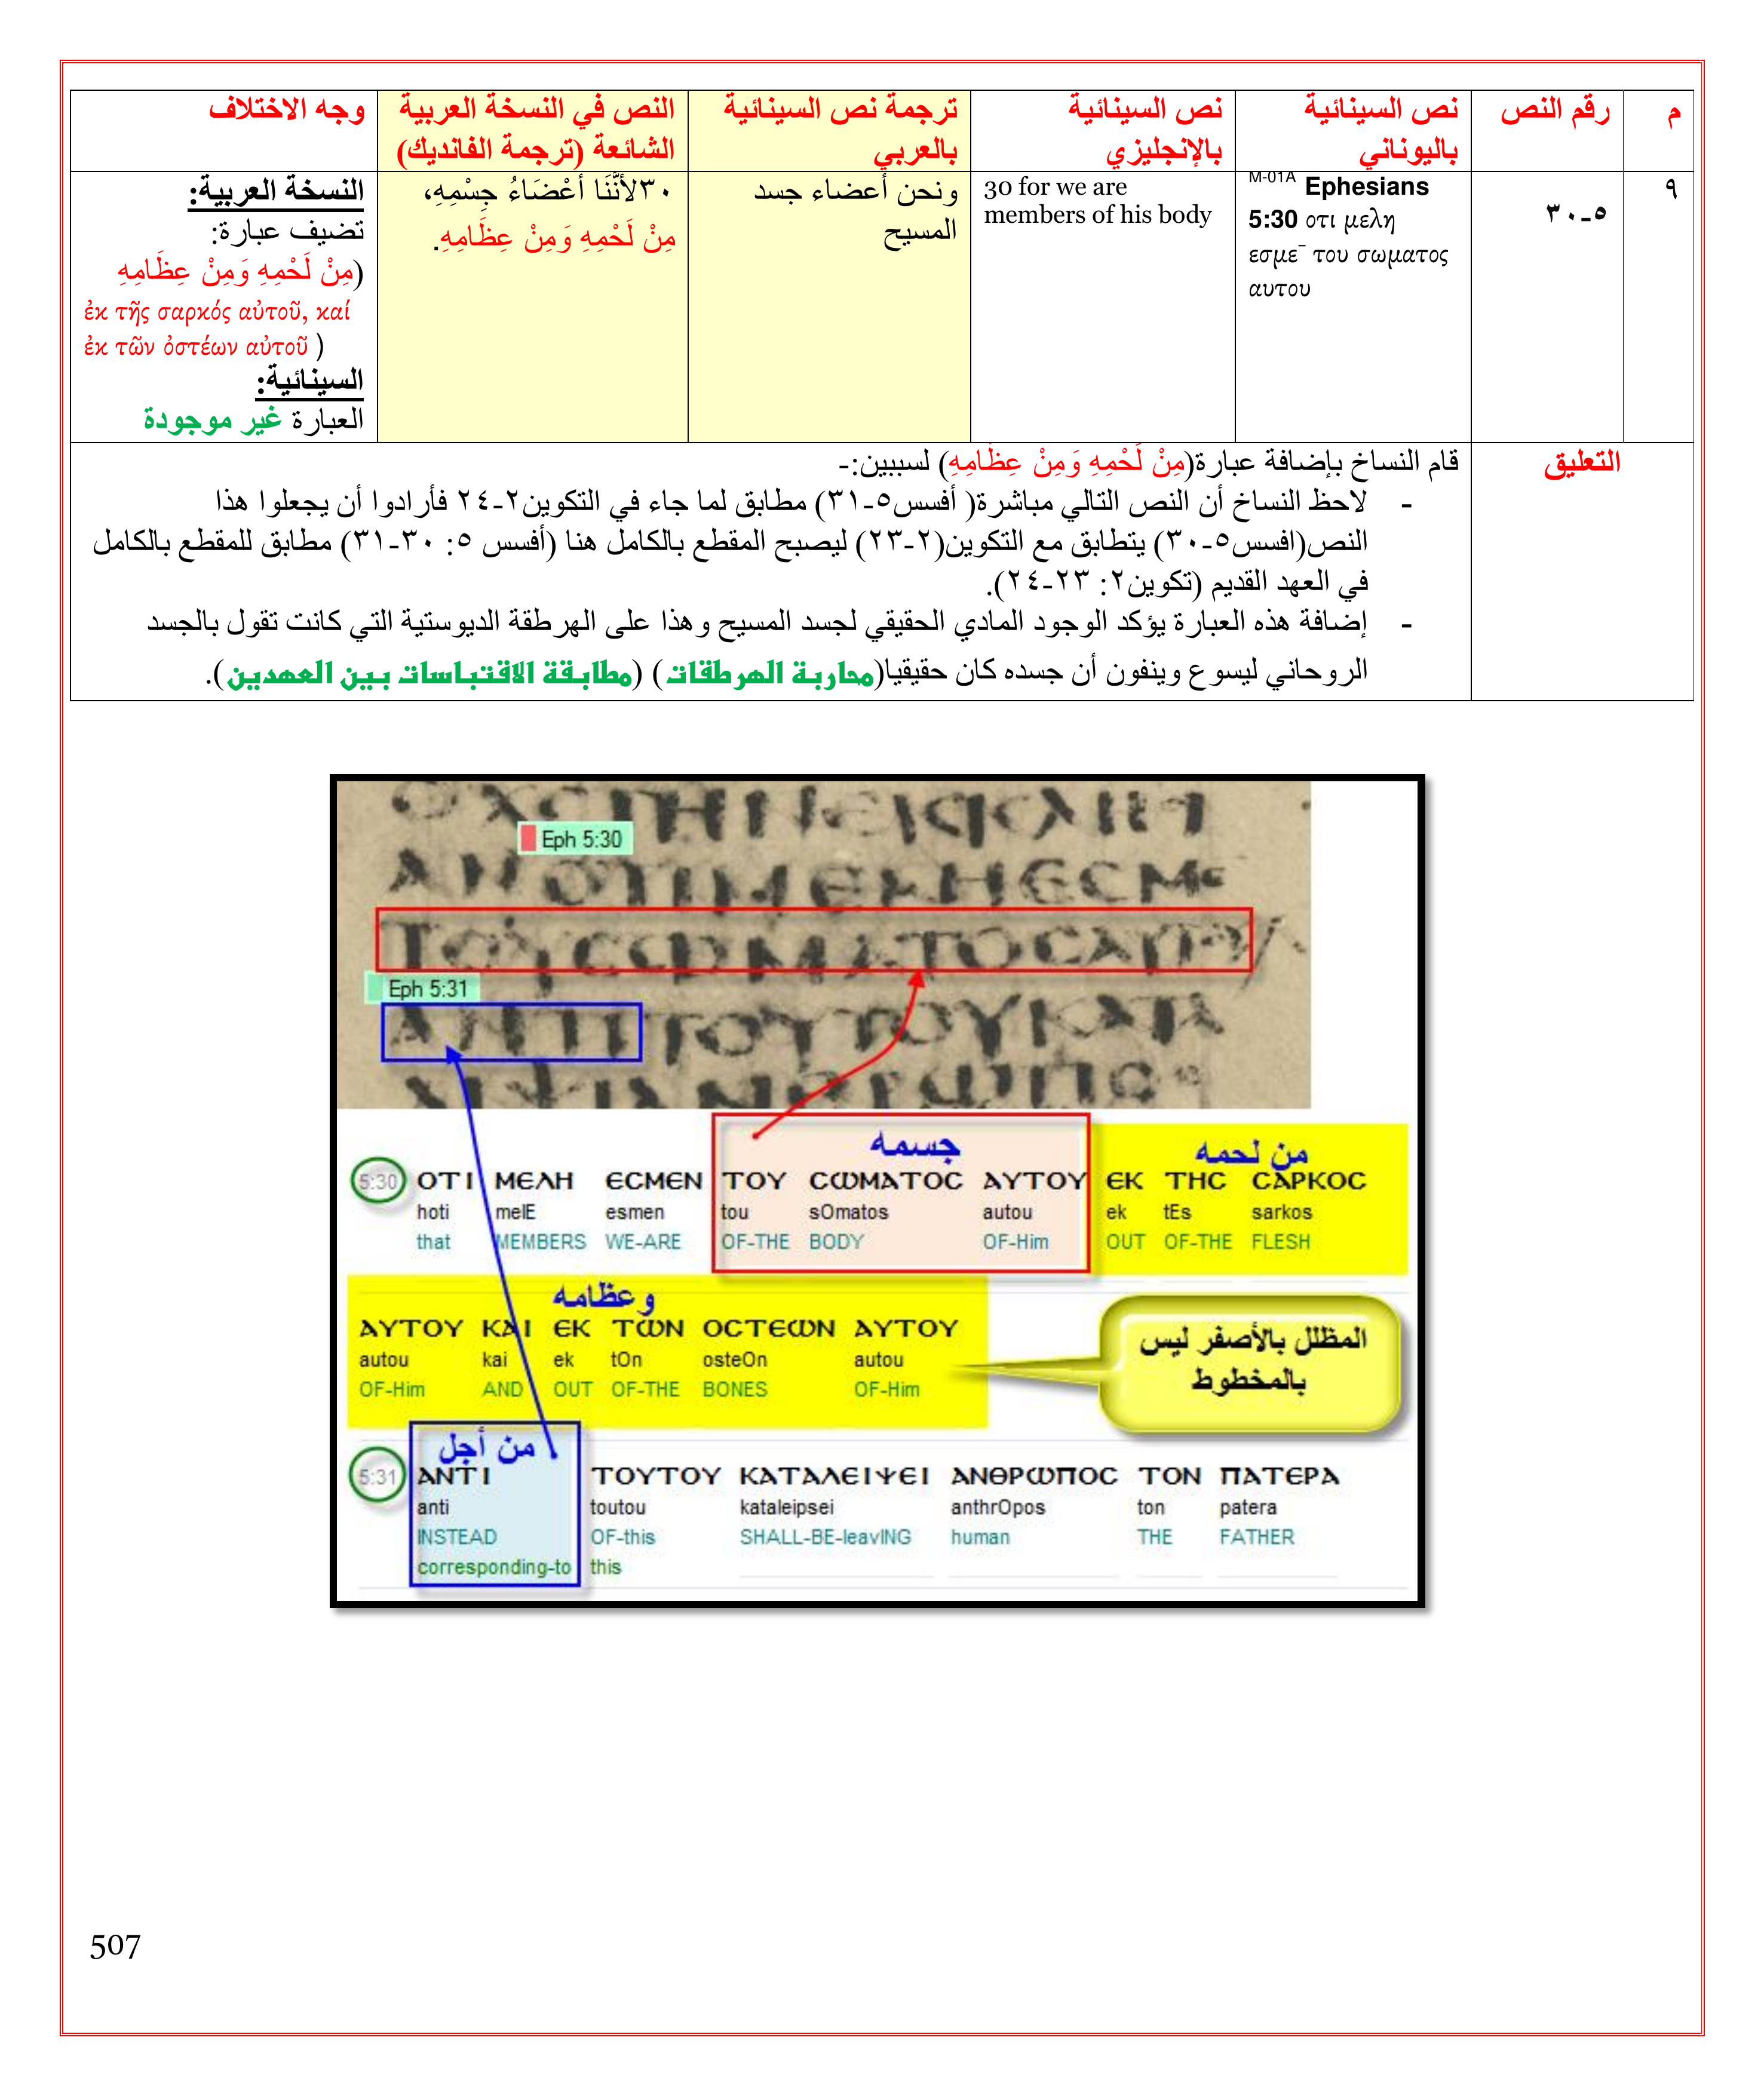 م
رقم النص
نص السينائية
باليوناني
نص السينائية
بالإنجليزي
ترجمة نص السينائية
بالعربي
النص في النسخة العربية
الشائعة (ترجمة الفانديك)
وجه الاختلاف
٩
٥-٣٠
M-01A Ephesians
5:30 οτι μελη
εσμε¯ του σωματος
αυτου
30 for we are
members of his body
ونحن أعضاء جسد
المسيح
٣٠لأَنَّنَا أَعْضَاءُ جِسْمِهِ،
مِنْ لَحْمِهِ وَمِنْ عِظَامِهِ.
النسخة العربية:
تضيف عبارة:
(مِنْ لَحْمِهِ وَمِنْ عِظَامِهِ
ἐκ τῆς σαρκός αὐτοῦ, καί
ἐκ τῶν ὀστέων αὐτοῦ )
السينائية:
العبارة غير موجودة
التعليق
قام النساخ بإضافة عبارة(مِنْ لَحْمِهِ وَمِنْ عِظَامِهِ) لسببين:-
- لاحظ النساخ أن النص التالي مباشرة( أفسس٥-٣١) مطابق لما جاء في التكوين٢-٢٤ فأرادوا أن يجعلوا هذا
النص(افسس٥-٣٠) يتطابق مع التكوين(٢-٢٣) ليصبح المقطع بالكامل هنا (أفسس ٥: ٣٠-٣١) مطابق للمقطع بالكامل
في العهد القديم (تكوين٢: ٢٣-٢٤).
- إضافة هذه العبارة يؤكد الوجود المادي الحقيقي لجسد المسيح وهذا على الهرطقة الديوستية التي كانت تقول بالجسد
الروحاني ليسوع وينفون أن جسده كان حقيقيا(محاربة الهرطقات) (مطابقة الاقتباسات بين العهدين).
Eph 5:30
ΑΝΟΤΙΜΕΛΗΕСΜΕ
ΤΟΥСѠΜΑΤΟСΑΥΤΟΥ
Eph 5:31
ΑΝΤΙΤΟΥΤΟΥΚΑΤΑ
جسمه
من لحمه
5:30 ΟΤΙ ΜΕΛΗ ΕСΜΕΝ ΤΟΥ СѠΜΑΤΟС ΑΥΤΟΥ ΕΚ ΤΗС СΑΡΚΟС
hoti melE esmen tou sOmatos autou ek tEs sarkos
that MEMBERS WE-ARE OF-THE BODY OF-Him OUT OF-THE FLESH
وعظامه
ΑΥΤΟΥ ΚΑΙ ΕΚ ΤѠΝ ΟСΤΕѠΝ ΑΥΤΟΥ
autou kai ek tOn osteOn autou
OF-Him AND OUT OF-THE BONES OF-Him
المظلل بالأصفر ليس
بالمخطوط
من أجل
5:31 ΑΝΤΙ ΤΟΥΤΟΥ ΚΑΤΑΛΕΙΨΕΙ ΑΝΘΡѠΠΟС ΤΟΝ ΠΑΤΕΡΑ
anti toutou kataleipsei anthrOpos ton patera
INSTEAD OF-this SHALL-BE-leavING human THE FATHER
corresponding-to this
507